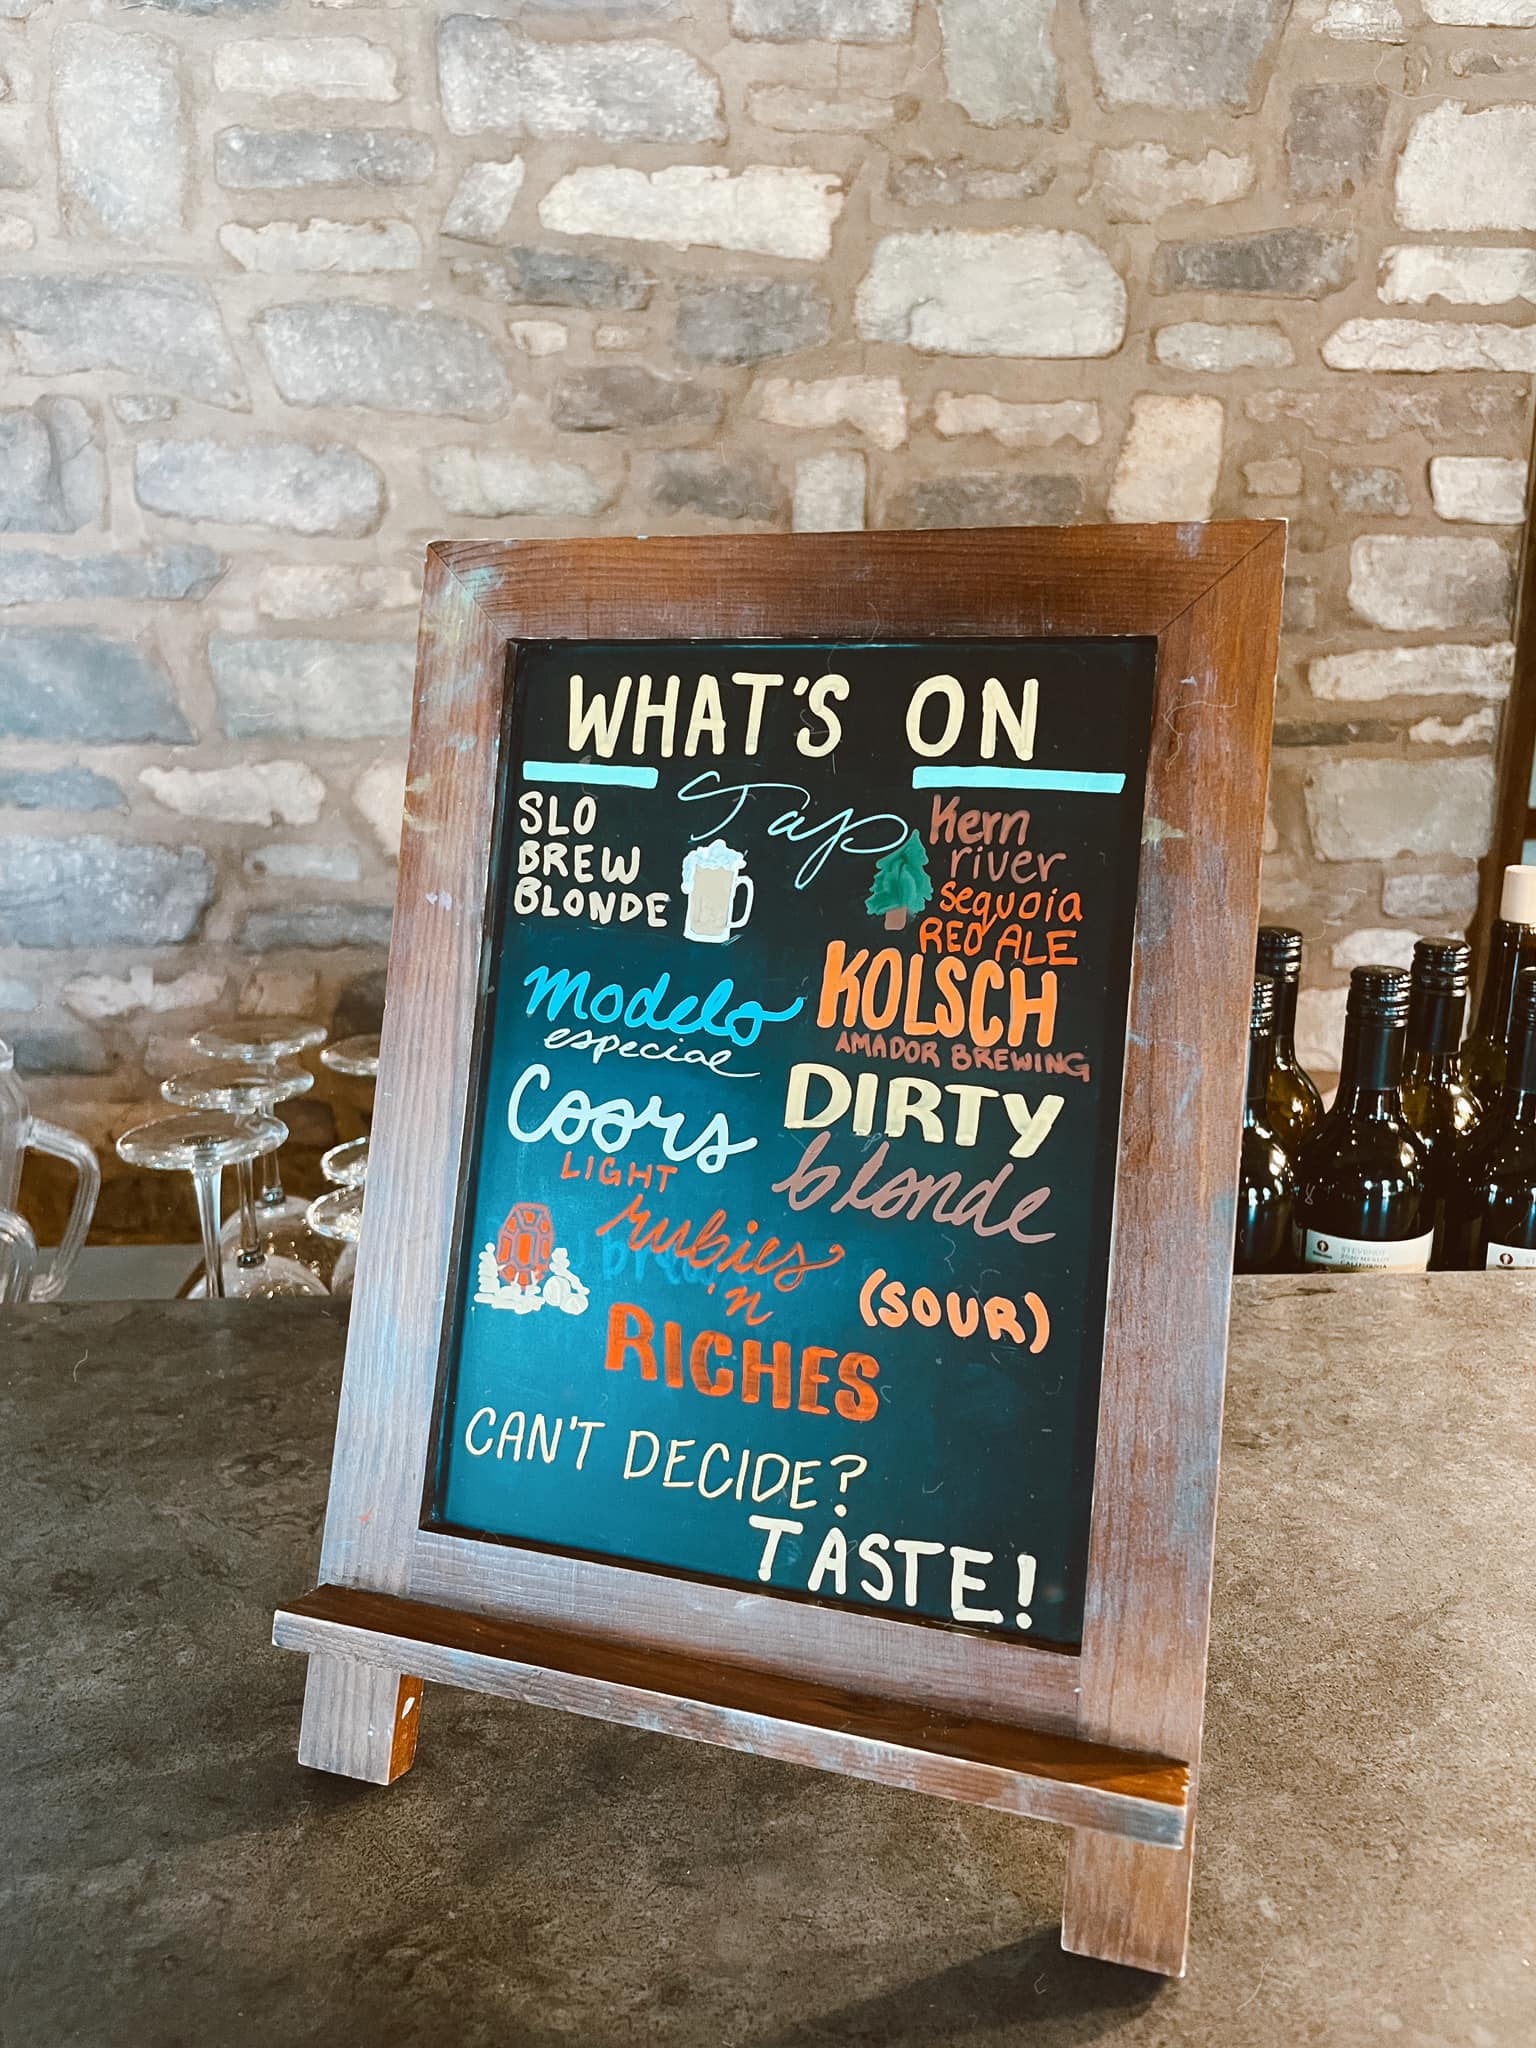 WHAT'S ON
Tap
SLO
BREW
BLONDE
Kern
river
sequoia
RED ALE
modelo
especial
KOLSCH
AMADOR BREWING
Coors
LIGHT
DIRTY
blonde
rubies
'n
RICHES
(SOUR)
CAN'T DECIDE?
TASTE!
CALIFORNIA